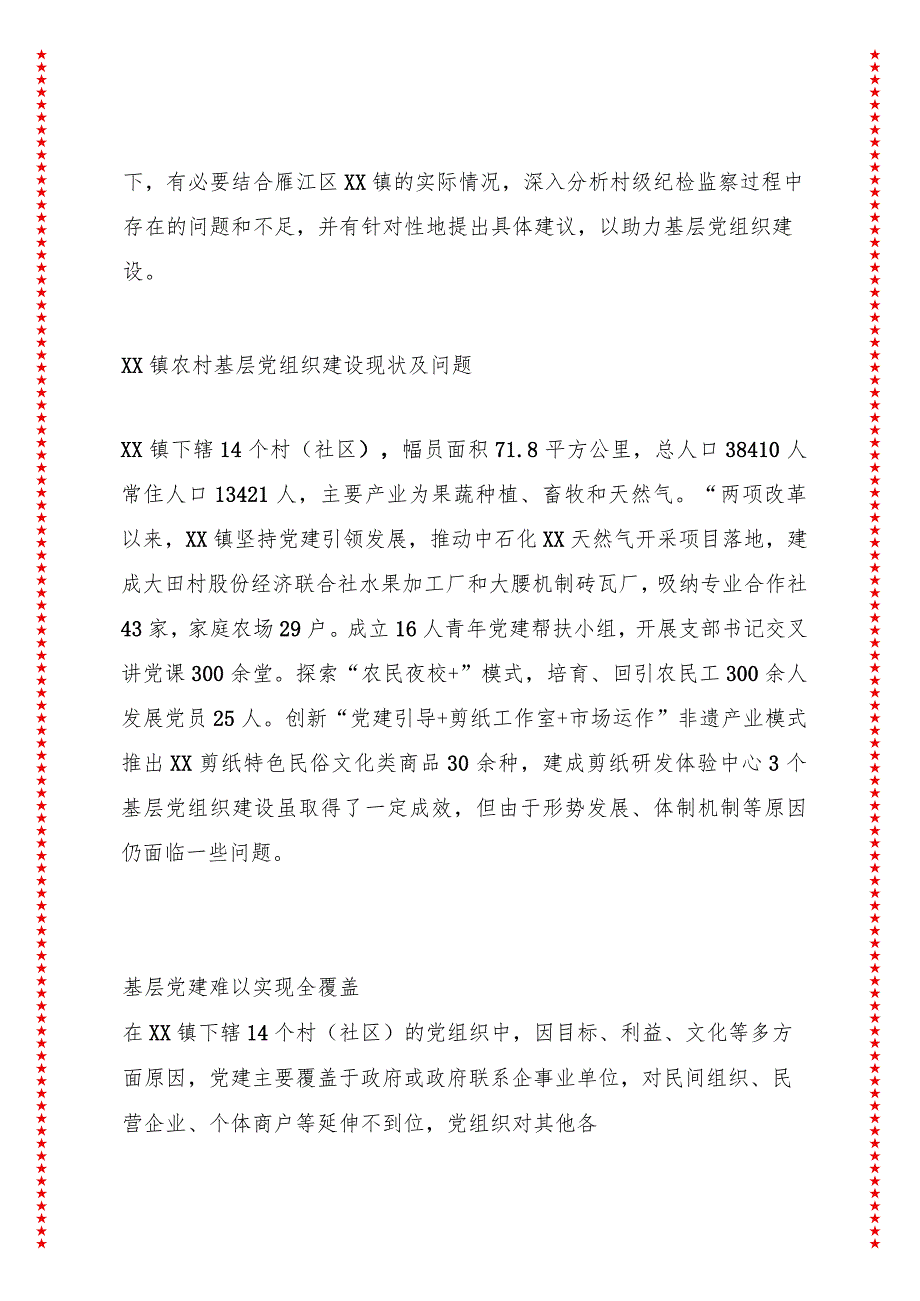 下，有必要结合雁江区 XX 镇的实际情况，深入分析村级纪检监察过程中
存在的问题和不足，并有针对性地提出具体建议，以助力基层党组织建
设。
XX 镇农村基层党组织建设现状及问题
XX 镇下辖 14 个村（社区），幅员面积 71.8 平方公里，总人口 38410 人
常住人口 13421 人，主要产业为果蔬种植、畜牧和天然气。“两项改革
以来，XX 镇坚持党建引领发展，推动中石化 XX 天然气开采项目落地，建
成大田村股份经济联合社水果加工厂和大腰机制砖瓦厂，吸纳专业合作社
43 家，家庭农场 29 户。成立 16 人青年党建帮扶小组，开展支部书记交叉
讲党课 300 余堂。探索“农民夜校+”模式，培育、回引农民工 300 余人
发展党员 25 人。创新“党建引导+剪纸工作室+市场运作”非遗产业模式
推出 XX 剪纸特色民俗文化类商品 30 余种，建成剪纸研发体验中心 3 个
基层党组织建设虽取得了一定成效，但由于形势发展、体制机制等原因
仍面临一些问题。
基层党建难以实现全覆盖
在 XX 镇下辖 14 个村（社区）的党组织中，因目标、利益、文化等多方
面原因，党建主要覆盖于政府或政府联系企事业单位，对民间组织、民
营企业、个体商户等延伸不到位，党组织对其他各